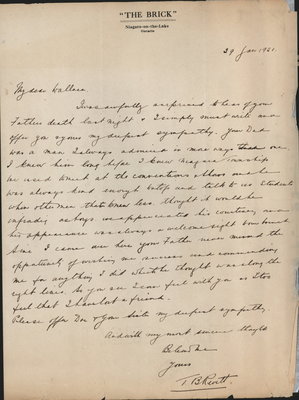 "THE BRICK"
Niagara-on-the-Lake
Ontario
29 Jan 1921.
My dear Wallace,
I was awfully surprised to hear of your
Fathers death last night & I simply must write and
offer you my deepest sympathy. Your Dad
was a man I always admired in more ways than one.
I knew him long before I knew Niagara township
we used to meet at the conventions and
was always kind enough to stop and talk to us students
when other men that knew less thought it would be
infradig as boys we appreciated his courtesy
his appearance was always a welcome sight
Since I came over here your Father never missed the
opportunity of wishing me success and commending
me for anything I did which he thought was along the
right lines. So you see I can feel with you as I too
feel that I have lost a friend.
Please offer & your Sister my deepest sympathy
And with my most sincere thoughts
Believe Me
Yours